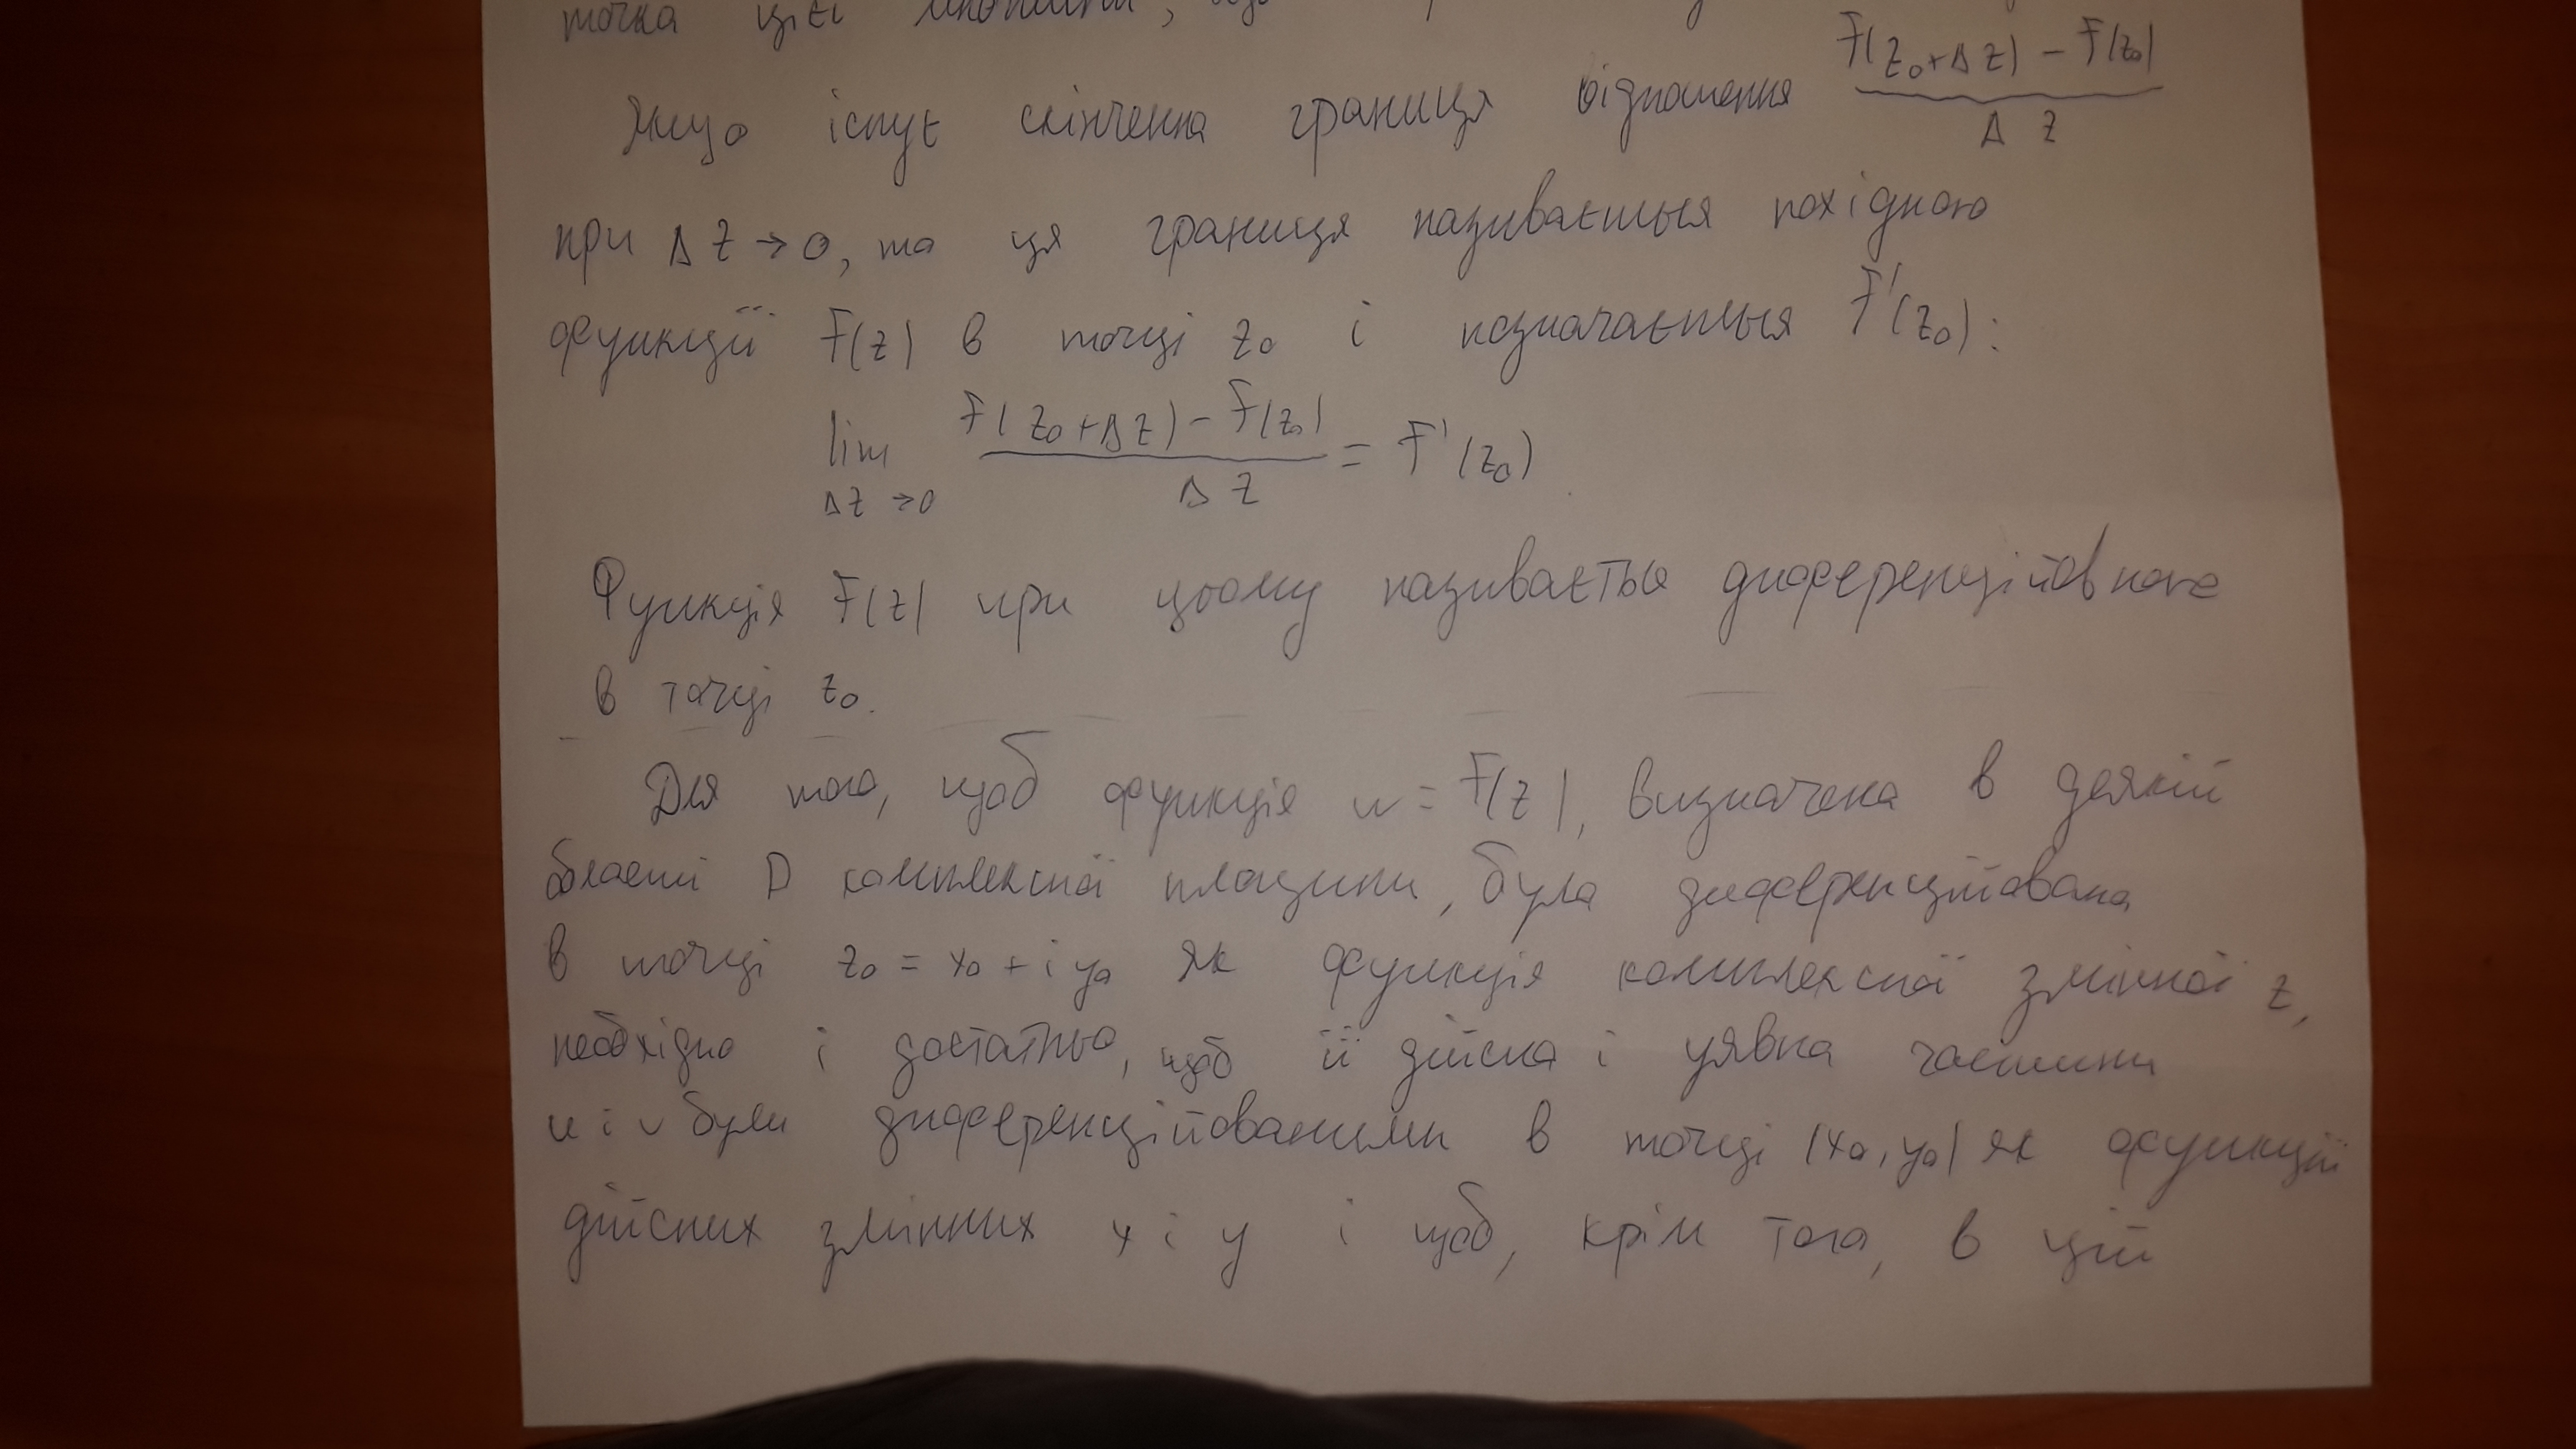 точка цієї
Якщо існує скінченна границя відношення F(z₀+Δz) − F(z₀) / Δz
при Δz → 0, то ця границя називається похідною
функції F(z) в точці z₀ і позначається F'(z₀):
lim Δz→0 F(z₀+Δz) − F(z₀) / Δz = F'(z₀)
Функція F(z) при цьому називається диференційовною
в точці z₀.
Для того, щоб функція w = F(z), визначена в деякій
області D комплексної площини, була диференційована
в точці z₀ = x₀ + i y₀ як функція комплексної змінної z,
необхідно і достатньо, щоб її дійсна і уявна частини
u і v були диференційованими в точці (x₀, y₀) як функції
дійсних змінних x і y і щоб, крім того, в цій